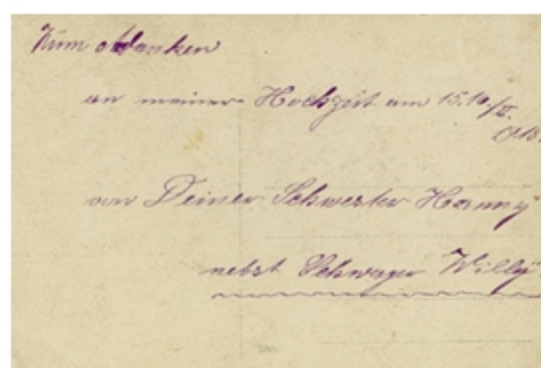 Zum Andenken
an meiner Hochzeit am 15.
von Deiner Schwester Hanny
nebst Schwager Willy.